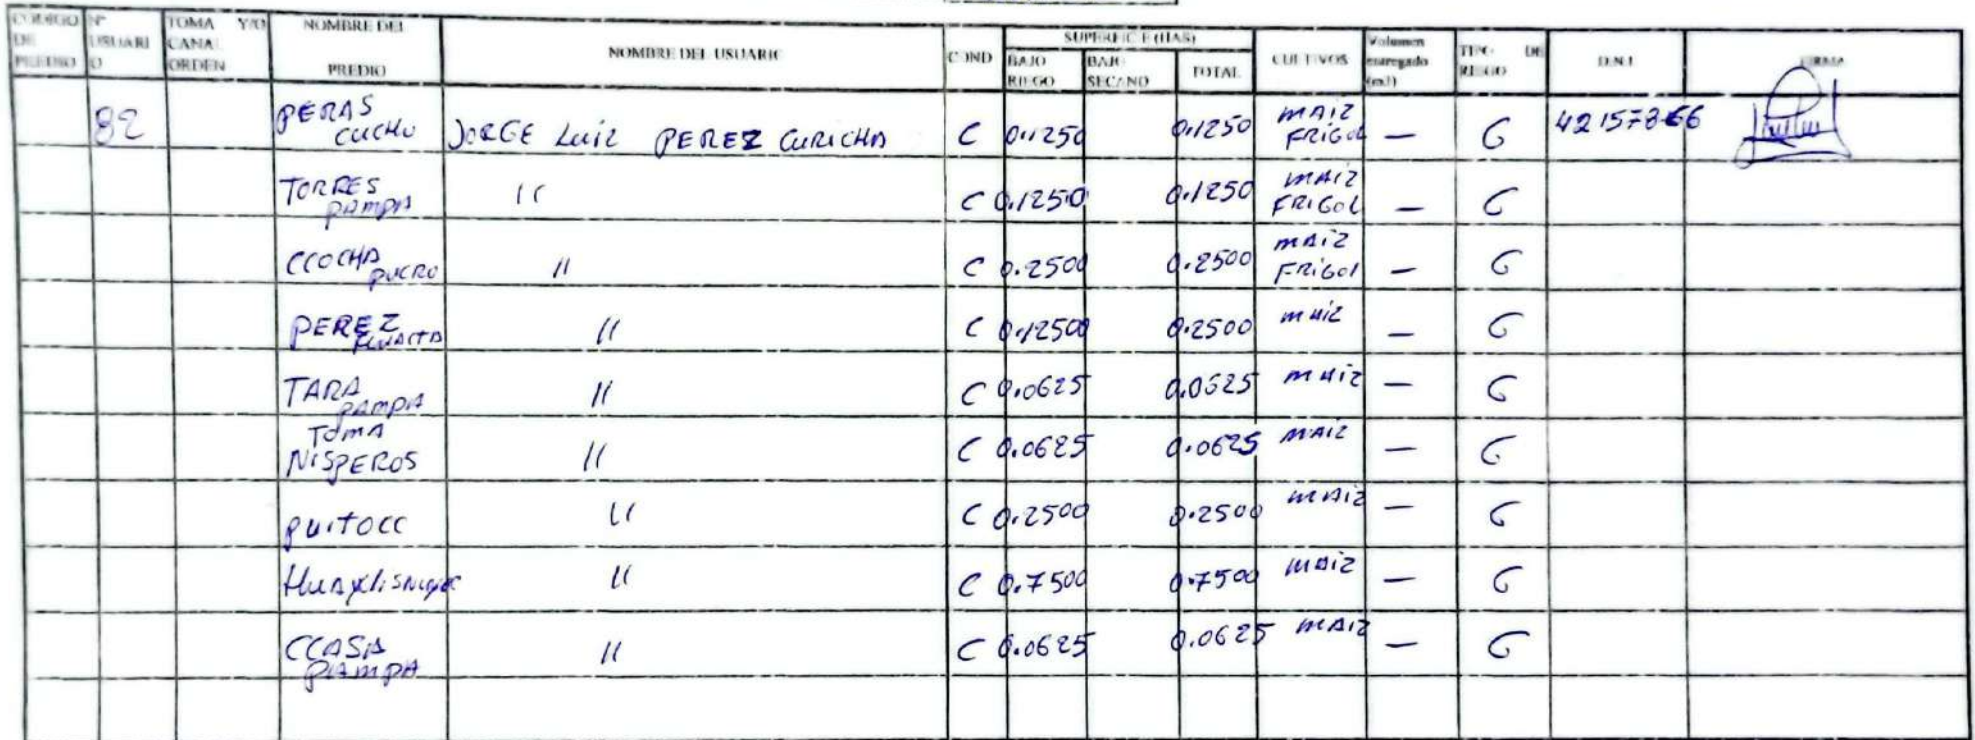 CODIGO DE PREDIO N° USUARIO TOMA Y/O CANAL ORDEN NOMBRE DEL PREDIO NOMBRE DEL USUARIO COND SUPERFICIE (HAS) BAJO RIEGO BAJO SECANO TOTAL CULTIVOS Volumen entregado (m3) TIPO DE RIEGO D.N.I FIRMA
82 PERAS CUCHO JORGE LUIZ PEREZ CURICHA C 0.1250 0.1250 MAIZ FRIGOL — G 42157866
TORRES PAMPA 11 C 0.1250 0.1250 MAIZ FRIGOL — G
CCOCHA PUCRO 11 C 0.2500 0.2500 MAIZ FRIGOL — G
PEREZ 11 C 0.2500 MAIZ — G
TARA PAMPA 11 C 0.0625 0.0625 MAIZ — G
TOMA NISPEROS 11 C 0.0625 0.0625 MAIZ — G
PUITOCC 11 C 0.2500 0.2500 MAIZ — G
11 C 0.7500 0.7500 MAIZ — G
CCASA PAMPA 11 C 0.0625 0.0625 MAIZ — G